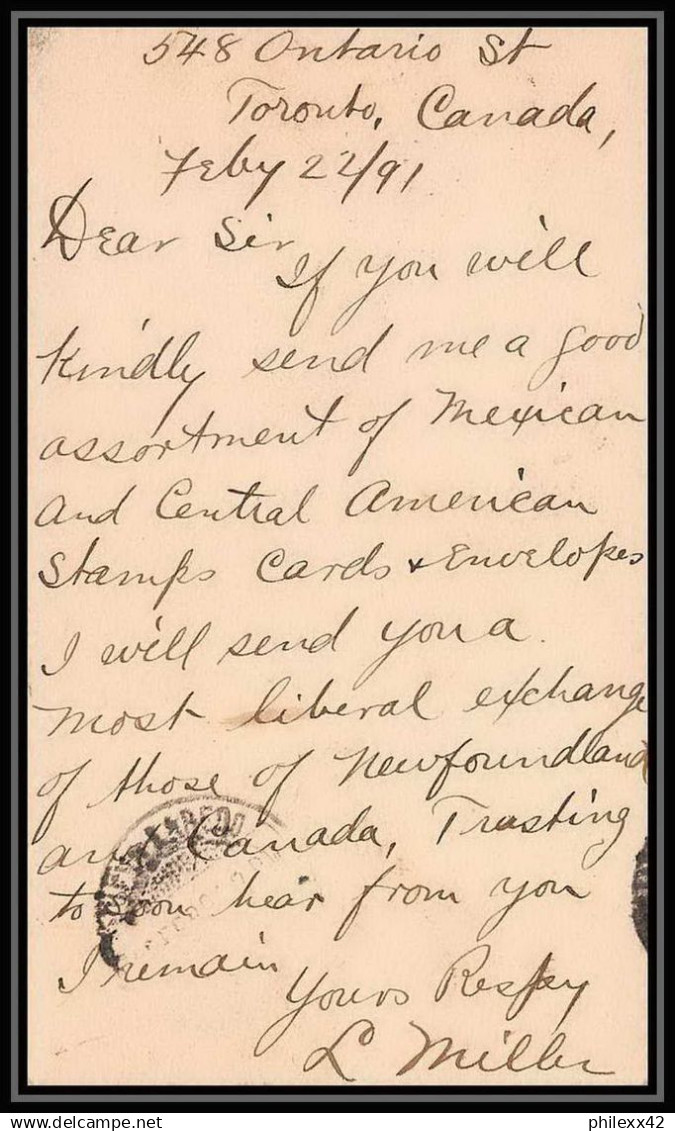 548 Ontario St
Toronto, Canada,
Feby 22/91
Dear Sir
If you will
kindly send me a good
assortment of Mexican
and Central American
Stamps Cards & Envelopes
I will send you a
most liberal exchange
of those of Newfoundland
and Canada, Trusting
to soon hear from you
I remain
Yours Respy
L Miller
philexx42